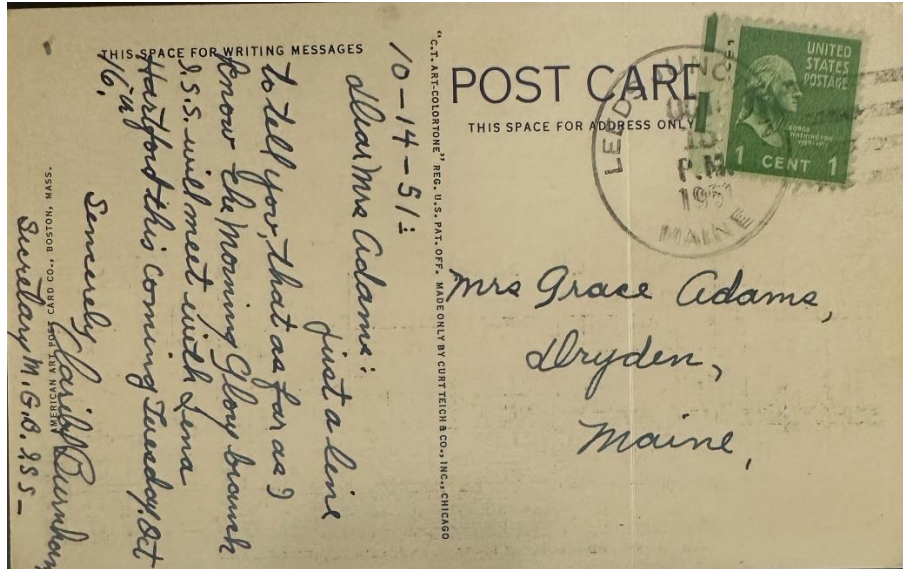 THIS SPACE FOR WRITING MESSAGES
10-14-51:
Dear Mrs Adams:
Just a line
to tell you, that as far as I
know the Morning Glory branch
I.S.S. will meet with Lena
Hartford this coming Tuesday. Oct
16th.
Sincerely
Burnham
Secretary M.G.B. ISS-
AMERICAN ART POST CARD CO., BOSTON, MASS.
"C.T. ART-COLORTONE" REG. U.S. PAT. OFF. MADE ONLY BY CURT TEICH & CO., INC., CHICAGO
POST CARD
THIS SPACE FOR ADDRESS ONLY
LEEDS JUNC
15
P.M.
1951
MAINE
UNITED
STATES
POSTAGE
GEORGE
WASHINGTON
1 CENT 1
Mrs Grace Adams,
Dryden,
Maine,